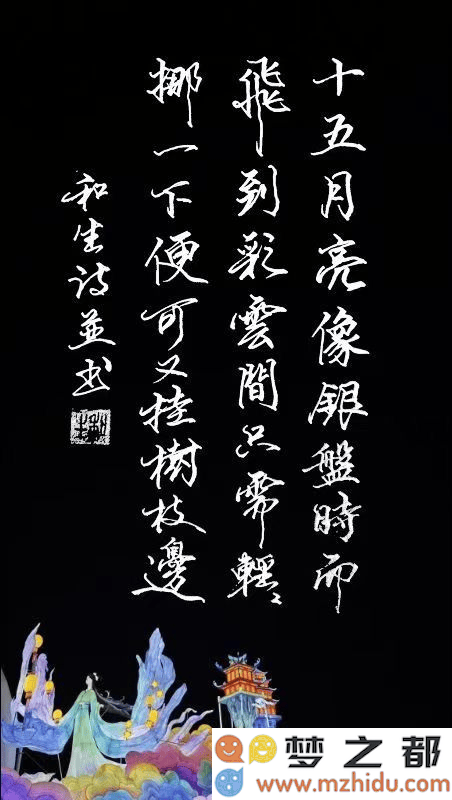 十五月亮像銀盤時而
飛到彩雲間只需輕々
挪一下便可又挂樹枝邊
和生诗並书
梦之都
www.mzhidu.com